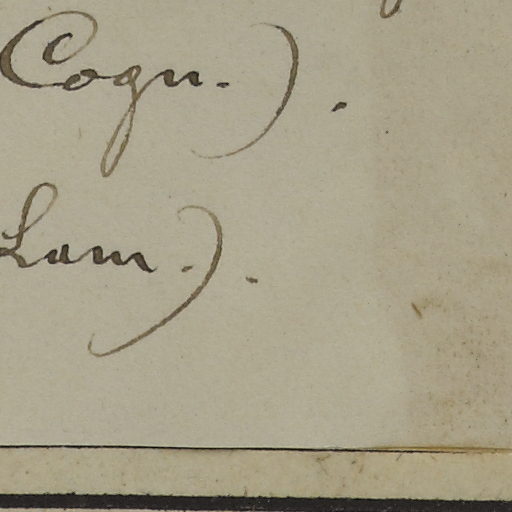 Cogn.).
Lam.).